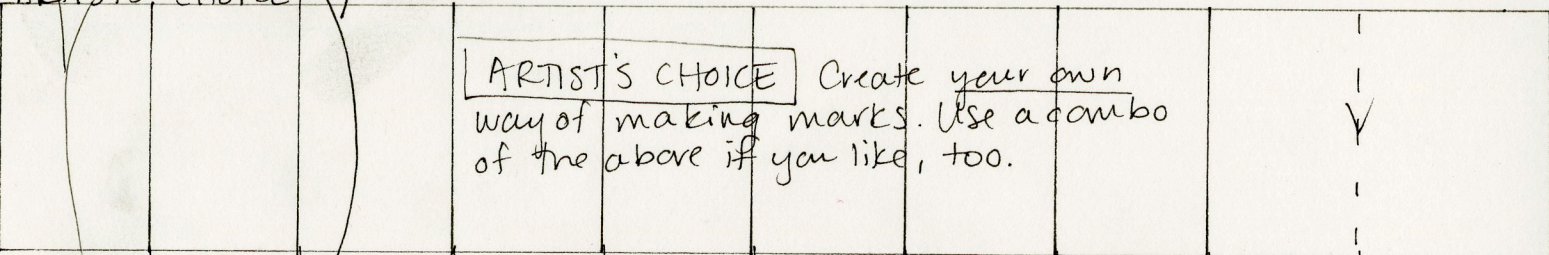 ARTIST'S CHOICE
ARTIST'S CHOICE Create your own
way of making marks. Use a combo
of the above if you like, too.